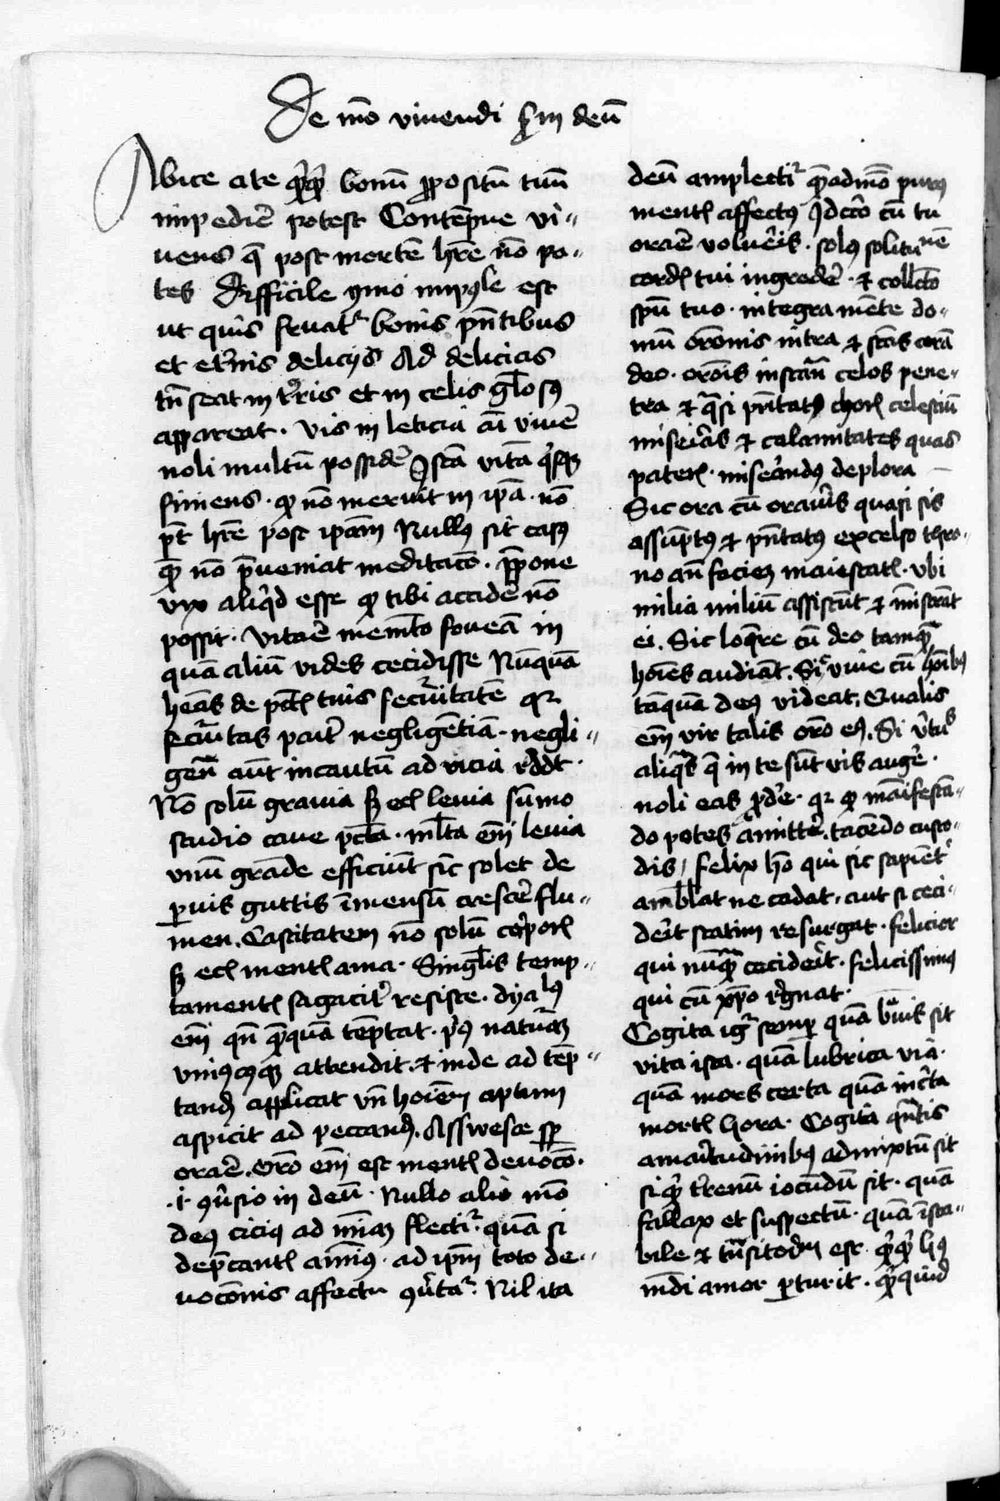 De mō viuendi scdm deū
Abice a te q̄cq̄d bonū ꝓpositū tuū
impedire potest Contēpne vi-
uens q̄ post mortē hr̄e nō po-
tes Difficile ymo impossibile est
ut quis fruatr bonis pn̄tibus
et et̄nis delicijs Ad delicias
tn̄ seat in t̄ris et in celis gl̄osꝰ
appareat. vis in leticia aī viuē
noli multū possidē Istā vitā
finiens. qꝫ nō meruit in ipā. nō
pt̄ hr̄e post ipam Nullꝰ sit casꝰ
quē nō p̄ueniat meditacō. ꝓpone
vix aliqd esse qꝫ tibi accidē nō
possit. Vitare memēto foueā in
quā aliū vides cecidisse Nūquā
heās de pctīs tuis securitatē qꝛ
securitas parit negligētiā. negli-
gen̄ aūt incautū ad vicia reddt.
Nō solū grauia sꝫ ecī leuia sūmo
studio caue pctā. ml̄ta em̄ leuia
vnū grāde efficiūt sīc solet de
ꝑuis guttis īmensū crescē flu-
men. Castitatem nō solū corporis
sꝫ ecī mentis ama. Singl̄is temp-
tamentis sagacit̄ resiste. dyalꝰ
em̄ qn̄ quēquā tēptat. pꝰ naturaꝫ
vniuscuiusqꝫ attendit. et inde ad tēp-
tandū applicat vn̄ hoīem aptum
aspicit ad peccandū. Assuesce sp̄
orare. Orō em̄ est mentis deuocō.
.i. ꝯuersio in deū. Nullo alio mō
deꝰ citiꝰ ad mīaꝫ flectir quā si
dep̄cantis animꝰ. ad ipm̄ toto de-
uocōnis affectu ꝯuertar. Nil ita
deū amplectir queadmō purus
mentis affectꝰ Idcirco cū tu
orare volueris. solꝰ solitudinē
cordis tui ingredē. et collecto
spū tuo. integra mēte do-
mū orōnis intra et stās corā
deo. orōis instan̄ celos pene-
tra et q̄si pn̄tatꝰ choris celestiū
miserias et calamitates quas
pateris. miserandꝰ deplora
Sic ora cū oraueris quasi sis
assūptꝰ et pn̄tatꝰ excelso thro-
no an̄ faciem maiestatis. vbi
milia miliū assistūt et mīstrāt
ei. Sic loquere cū deo tamquā
hoīes audiāt. Sic viue cū hoībꝫ
tāquā deꝰ videat. Qualis
em̄ vir talis orō eiꝰ. Si v̄tutes
aliquas q̄ in te sūt vis augē.
noli eas ꝓdē. qꝛ qꝫ māifestā-
do potes amittē. tacēdo custo-
dis / felix hō qui sic sapiēt̄
ambulat ne cadat. aut si ceci-
derit statim resurgat. felicior
qui nūquā ceciderit. felicissimus
qui cū xpo regnat.
Cogita igr̄ semꝑ quā breuis sit
vita ista. quā lubrica via.
quā mors certa quā incerta
mortis hora. Cogita quantis
amaritudinibꝫ admixtū sit
siquid t̄renū iocūdū sit. quā
fallax et suspectū. quā īsta-
bile et trāsitoriū est q̄cq̄d hꝰ
mūdi amor ꝑturit. quicquid